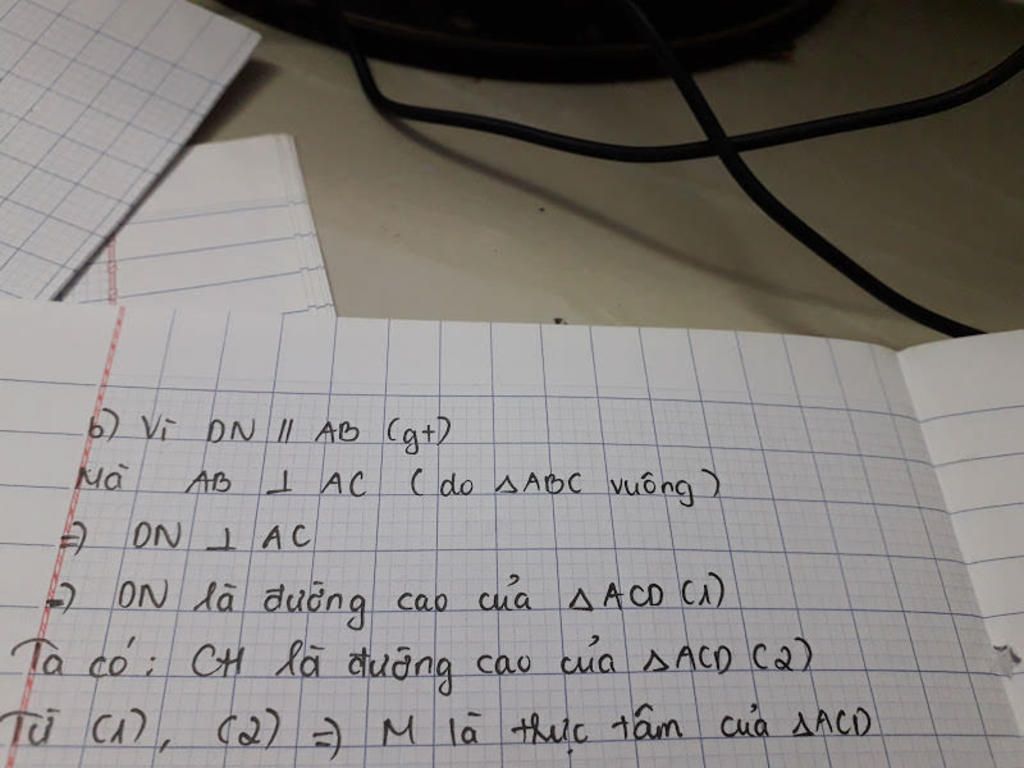 b) Vì DN // AB (gt)
Mà AB ⊥ AC (do △ABC vuông)
=) DN ⊥ AC
=) DN là đường cao của △ACD (1)
Ta có: CH là đường cao của △ACD (2)
Từ (1), (2) =) M là thực tâm của △ACD